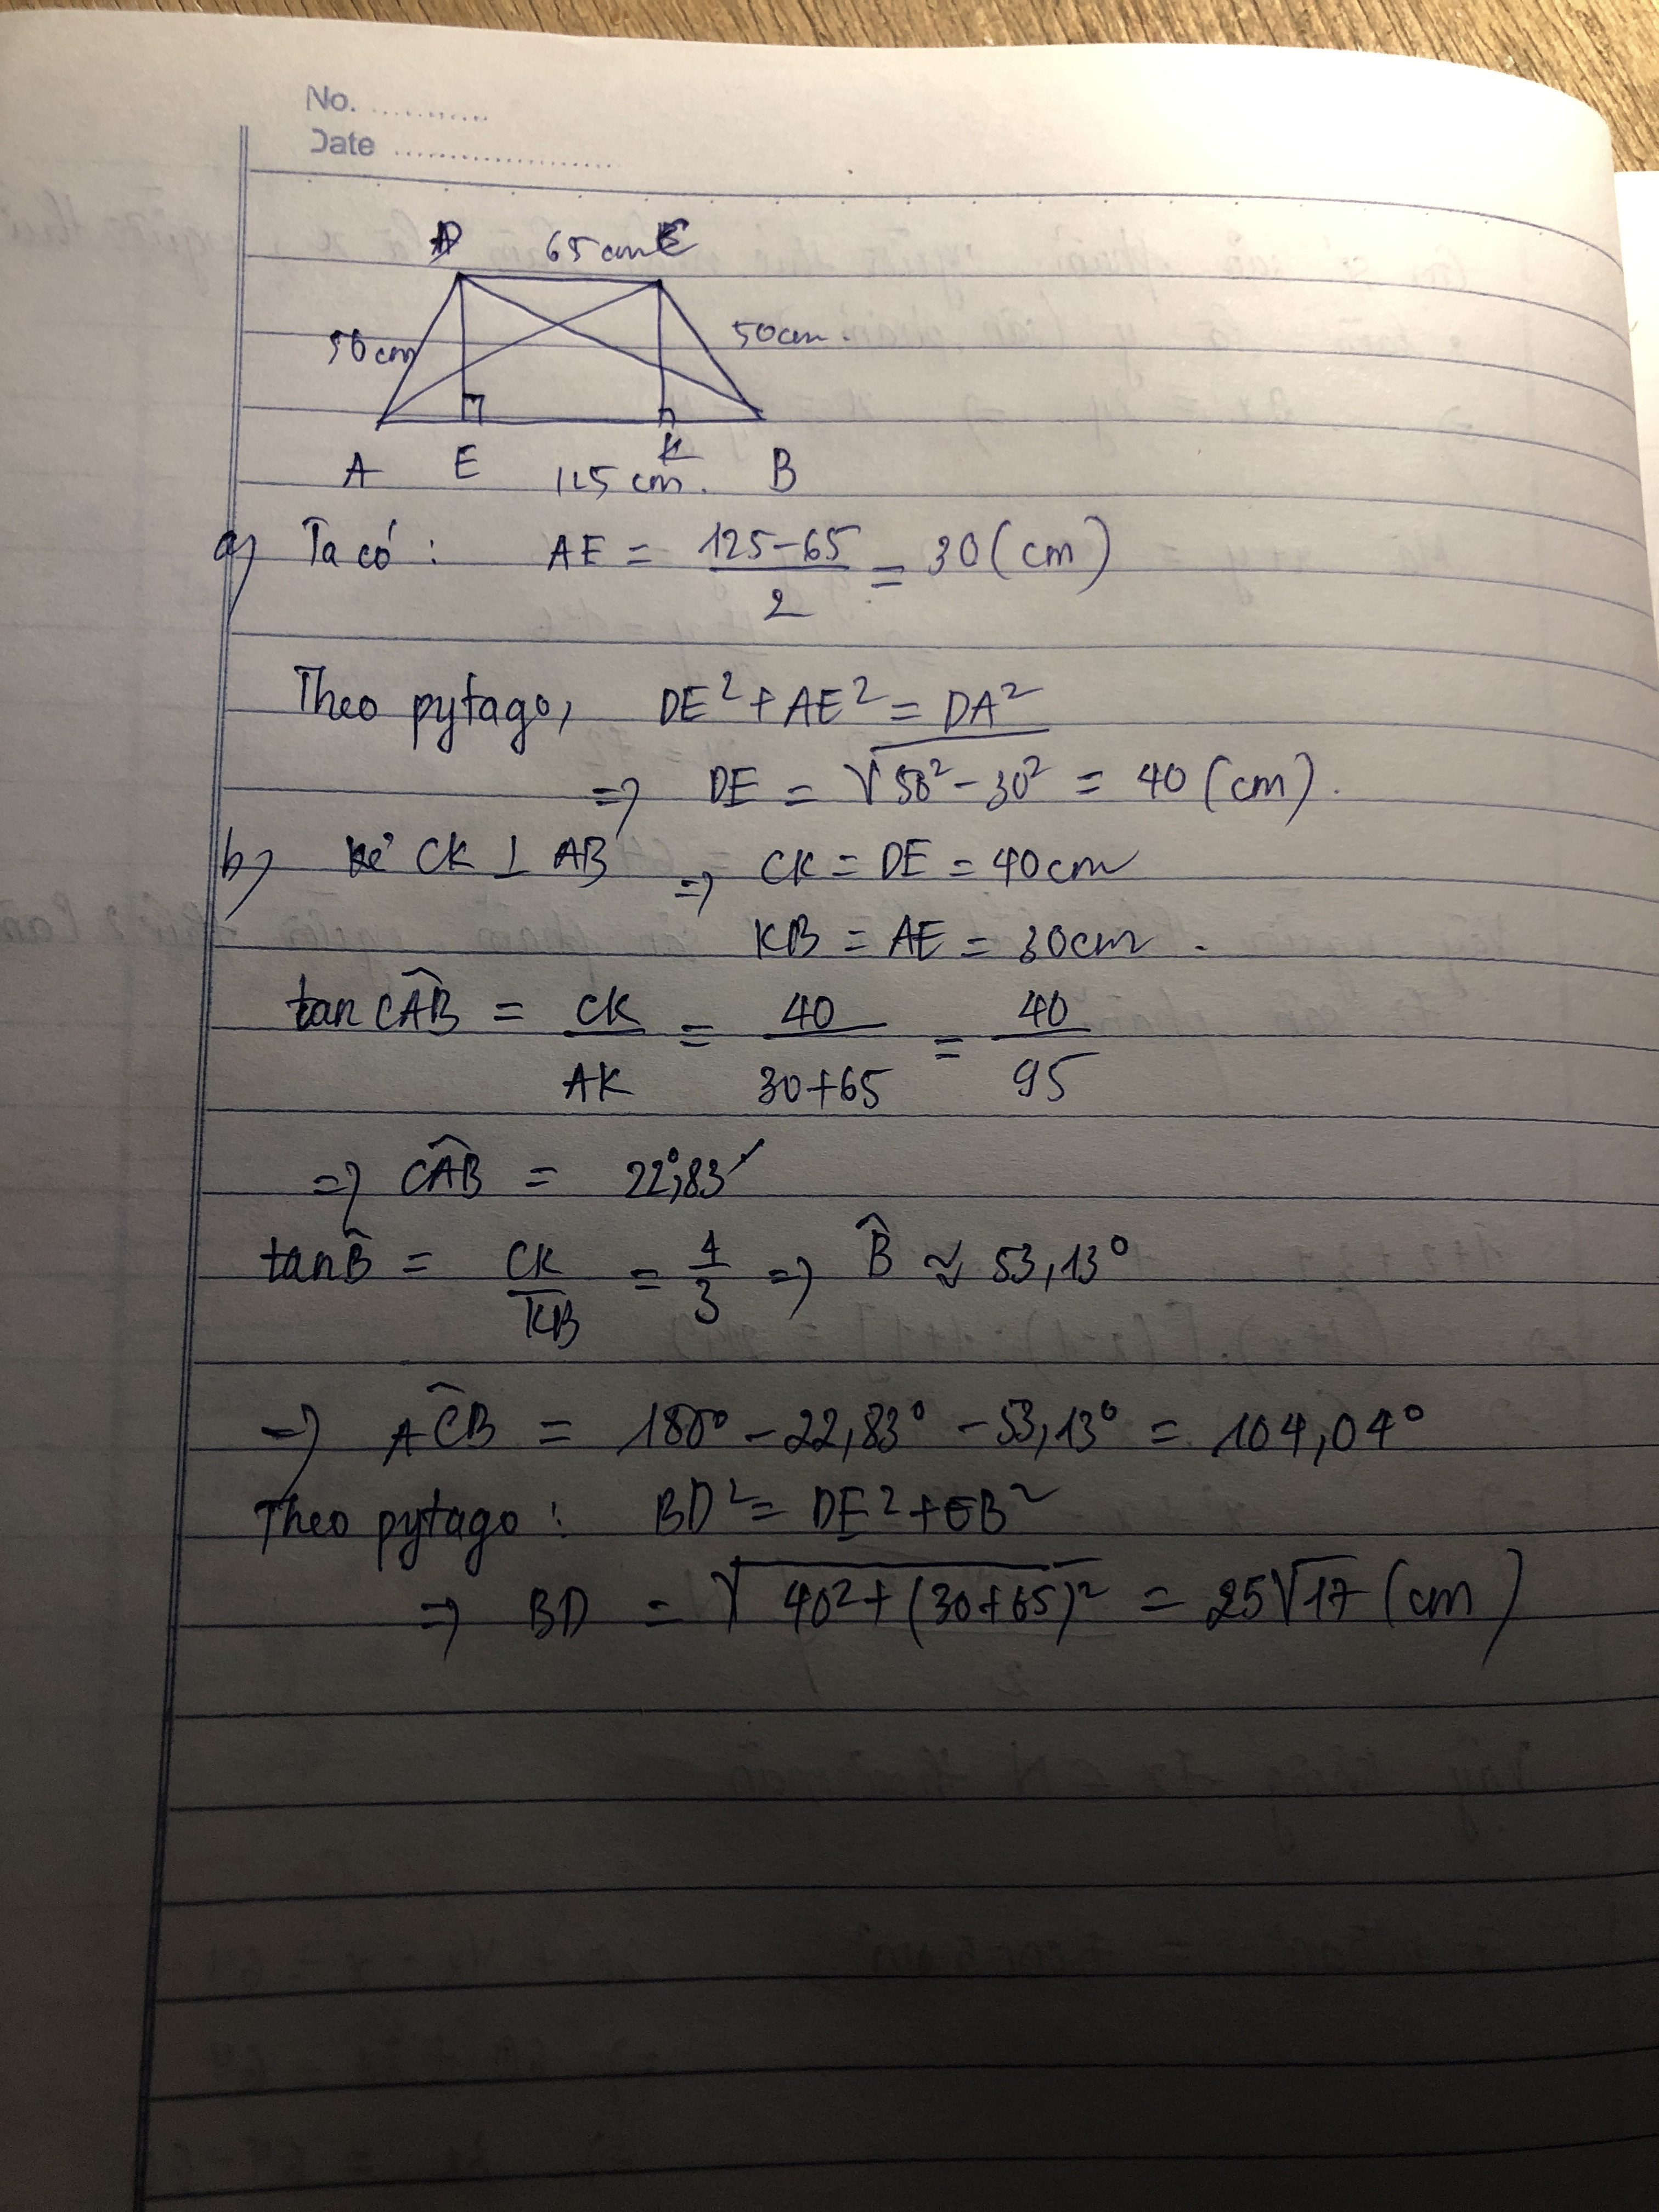 No. ...........
Date .....................
D 65cm C
50cm 50cm.
A E K B
125 cm.
a) Ta có : AE = \frac{125-65}{2} = 30 (cm)
Theo pytago, DE² + AE² = DA²
=> DE = √(50² - 30²) = 40 (cm).
b) Kẻ CK ⊥ AB => CK = DE = 40cm
KB = AE = 30cm .
tan \widehat{CAB} = \frac{CK}{AK} = \frac{40}{30+65} = \frac{40}{95}
=> \widehat{CAB} = 22°,83
tan \widehat{B} = \frac{CK}{KB} = \frac{4}{3} => \widehat{B} ≈ 53,13°
=> \widehat{ACB} = 180° - 22,83° - 53,13° = 104,04°
Theo pytago : BD² = DE² + EB²
=> BD = √(40² + (30+65)²) = 25√17 (cm)